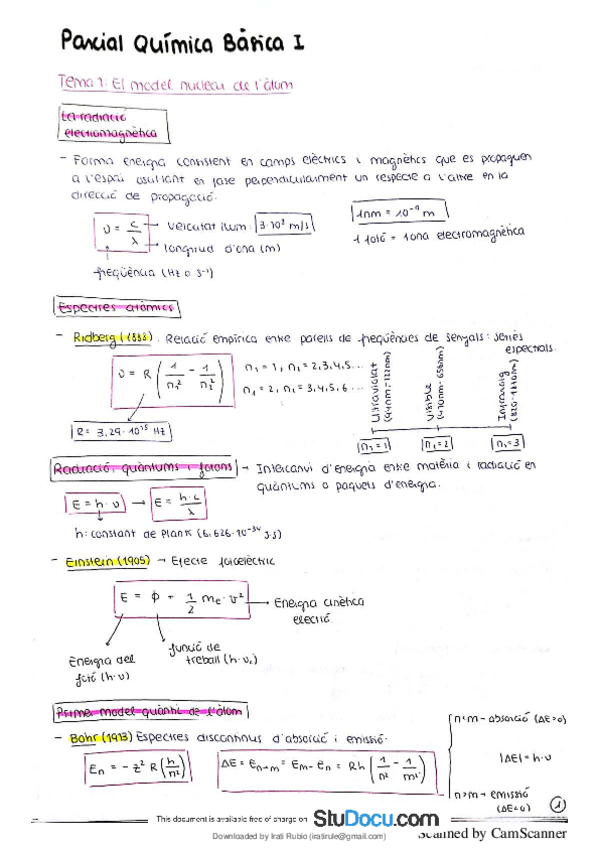 Parcial Química Bàsica I
Tema 1: El model nuclear de l'àtom
La radiació
electromagnètica
- Forma energia consistent en camps elèctrics i magnètics que es propaguen
a l'espai oscil·lant en fase perpendicularment un respecte a l'altre en la
direcció de propagació.
υ = c/λ → Velocitat llum: 3·10⁸ m/s
→ longitud d'ona (m)
freqüència (Hz o s⁻¹)
1nm = 10⁻⁹ m
1 fotó = 1 ona electromagnètica
Espectres atòmics
- Ridberg (1888). Relació empírica entre parells de freqüències de senyals: sèries
espectrals.
υ = R (1/n₁² - 1/n₂²)
n₁ = 1, n₂ = 2,3,4,5...
n₁ = 2, n₂ = 3,4,5,6...
R = 3,29·10¹⁵ Hz
Ultraviolat
Visible
Infraroig
n₁=1 n₁=2 n₁=3
Radiació, quàntums i fotons → Intercanvi d'energia entre matèria i radiació en
quàntums o paquets d'energia.
E = h·υ → E = h·c/λ
h: constant de Plank (6,626·10⁻³⁴ J·s)
- Einstein (1905) → Efecte fotoelèctric
E = φ + 1/2 mₑ·v² → Energia cinètica
electró.
Energia del
fotó (h·υ)
funció de
treball (h·υ₀)
Primer model quàntic de l'àtom
- Bohr (1913) Espectres discontinus d'absorció i emissió.
Eₙ = -z² R (h/n²)
ΔE = Eₙ→ₘ = Eₘ - Eₙ = Rh (1/n² - 1/m²)
|ΔE| = h·υ
1
This document is available free of charge on StuDocu.com
Downloaded by Irati Rubio (iratirule@gmail.com)
Scanned by CamScanner